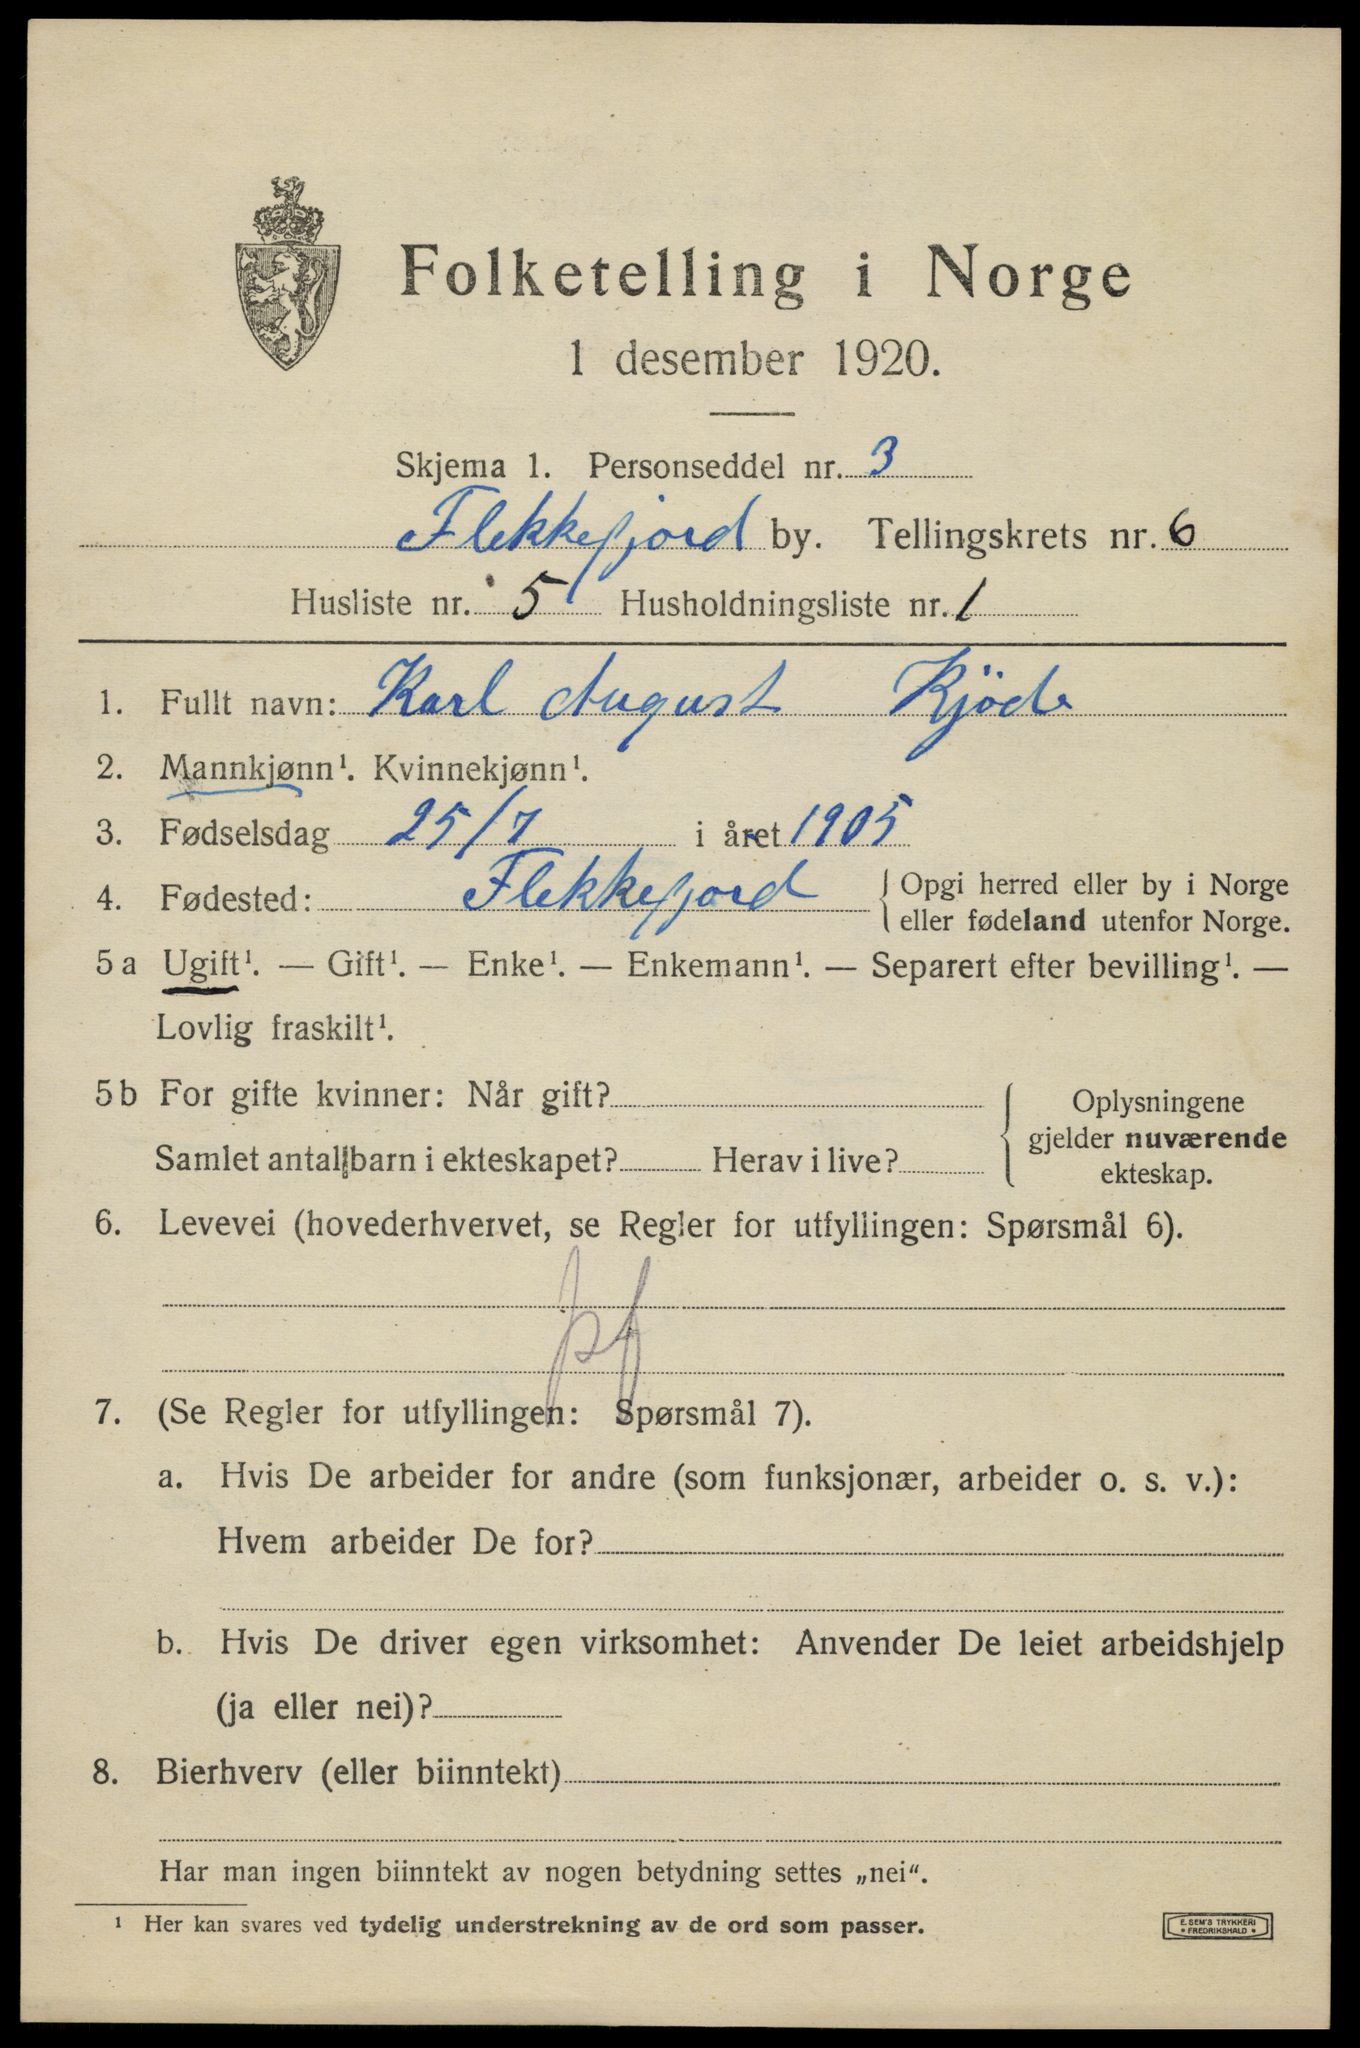 Folketelling i Norge
1 desember 1920.
Skjema 1. Personseddel nr. 3
Flekkefjord by. Tellingskrets nr. 6
Husliste nr. 5 Husholdningsliste nr. 1
1. Fullt navn: Karl August Kjöde
2. Mannkjønn¹. Kvinnekjønn¹.
3. Fødselsdag 25/7 i året 1905
4. Fødested: Flekkefjord { Opgi herred eller by i Norge
eller fødeland utenfor Norge.
5 a Ugift¹. — Gift¹. — Enke¹. — Enkemann¹. — Separert efter bevilling¹. —
Lovlig fraskilt¹.
5 b For gifte kvinner: Når gift?
Samlet antall barn i ekteskapet? Herav i live?
{ Oplysningene
gjelder nuværende
ekteskap.
6. Levevei (hovederhvervet, se Regler for utfyllingen: Spørsmål 6).
7. (Se Regler for utfyllingen: Spørsmål 7).
a. Hvis De arbeider for andre (som funksjonær, arbeider o. s. v.):
Hvem arbeider De for?
b. Hvis De driver egen virksomhet: Anvender De leiet arbeidshjelp
(ja eller nei)?
8. Bierhverv (eller biinntekt)
Har man ingen biinntekt av nogen betydning settes „nei“.
¹ Her kan svares ved tydelig understrekning av de ord som passer.
E. SEM'S TRYKKERI
* FREDRIKSHALD *